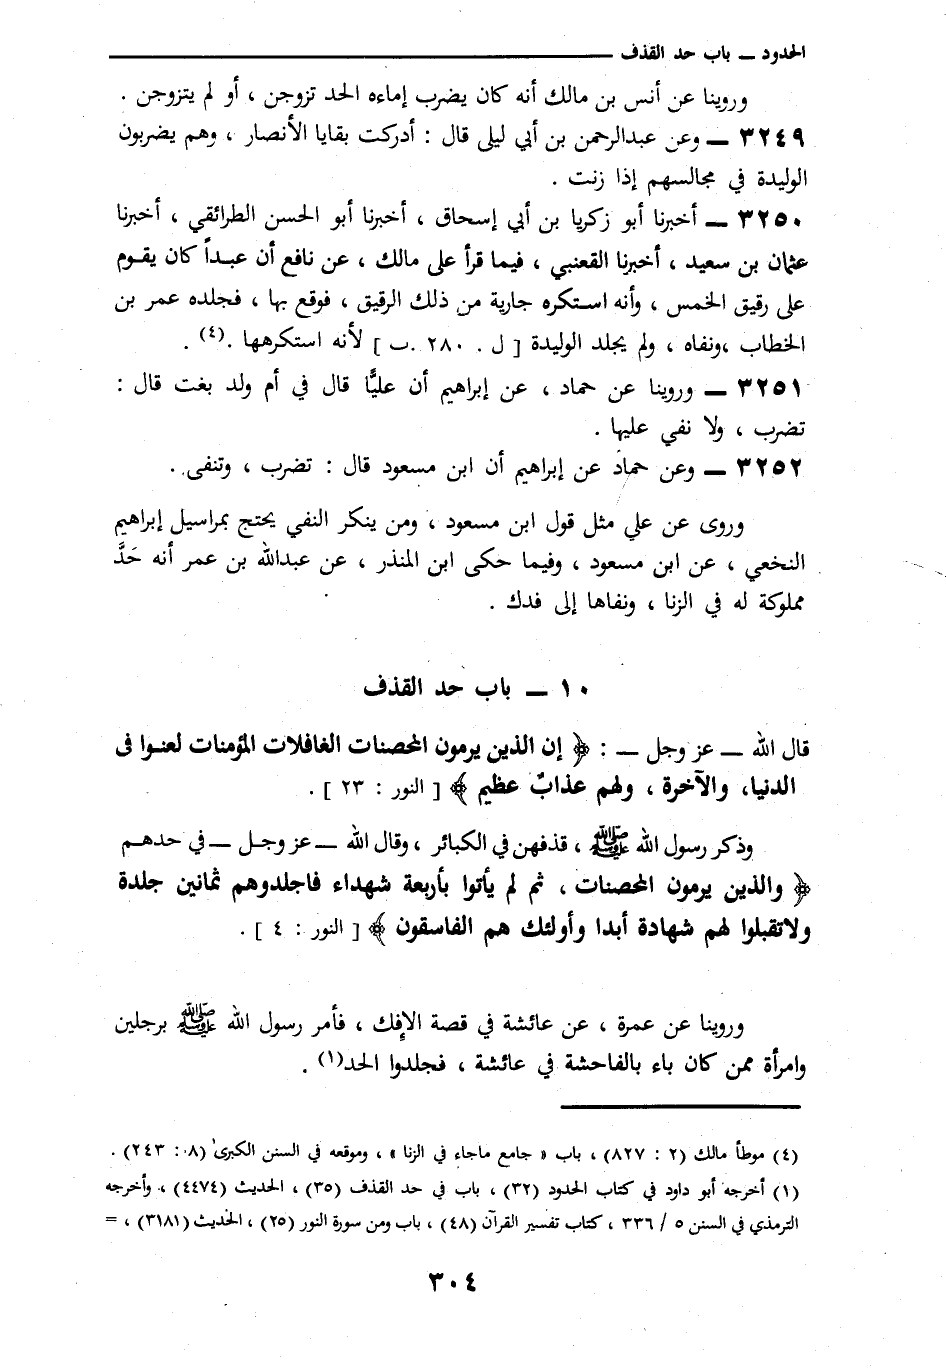 الحدود ــ باب حد القذف
وروينا عن أنس بن مالك أنه كان يضرب إماءه الحد تزوجن ، أو لم يتزوجن .
٣٢٤٩ ــ وعن عبدالرحمن بن أبي ليلى قال : أدركت بقايا الأنصار ، وهم يضربون
الوليدة في مجالسهم إذا زنت .
٣٢٥٠ ــ أخبرنا أبو زكريا بن أبي إسحاق ، أخبرنا أبو الحسن الطرائقي ، أخبرنا
عثمان بن سعيد ، أخبرنا القعنبي ، فيما قرأ على مالك ، عن نافع أن عبداً كان يقوم
على رقيق الخمس ، وأنه استكره جارية من ذلك الرقيق ، فوقع بها ، فجلده عمر بن
الخطاب ،ونفاه ، ولم يجلد الوليدة [ ل . ٢٨٠ .ب ] لأنه استكرهها .(٤) .
٣٢٥١ ــ وروينا عن حماد ، عن إبراهيم أن عليًّا قال في أم ولد بغت قال :
تضرب ، ولا نفي عليها .
٣٢٥٢ ــ وعن حماد عن إبراهيم أن ابن مسعود قال : تضرب ، وتنفى .
وروى عن علي مثل قول ابن مسعود ، ومن ينكر النفي يحتج بمراسيل إبراهيم
النخعي ، عن ابن مسعود ، وفيما حكى ابن المنذر ، عن عبدالله بن عمر أنه حَدَّ
مملوكة له في الزنا ، ونفاها إلى فدك .
١٠ ــ باب حد القذف
قال الله ــ عز وجل ــ : ﴿ إن الذين يرمون المحصنات الغافلات المؤمنات لعنوا فى
الدنيا، والآخرة ، ولهم عذابٌ عظيم ﴾ [ النور : ٢٣ ] .
وذكر رسول الله ﷺ ، قذفهن في الكبائر ، وقال الله ــ عز وجل ــ في حدهم
﴿ والذين يرمون المحصنات ، ثم لم يأتوا بأربعة شهداء فاجلدوهم ثمانين جلدة
ولاتقبلوا لهم شهادة أبدا وأولئك هم الفاسقون ﴾ [ النور : ٤ ] .
وروينا عن عمرة ، عن عائشة في قصة الإفك ، فأمر رسول الله ﷺ برجلين
وامرأة ممن كان باء بالفاحشة في عائشة ، فجلدوا الحد(١) .
(٤) موطأ مالك (٢ : ٨٢٧) ، باب « جامع ماجاء في الزنا » ، وموقعه في السنن الكبرى (٨ : ٢٤٣) .
(١) أخرجه أبو داود في كتاب الحدود (٣٢) ، باب في حد القذف (٣٥) ، الحديث (٤٤٧٤) ، وأخرجه
الترمذي في السنن ٥ / ٣٣٦ ، كتاب تفسير القرآن (٤٨) ، باب ومن سورة النور (٢٥) ، الحديث (٣١٨١) ، =
٣٠٤